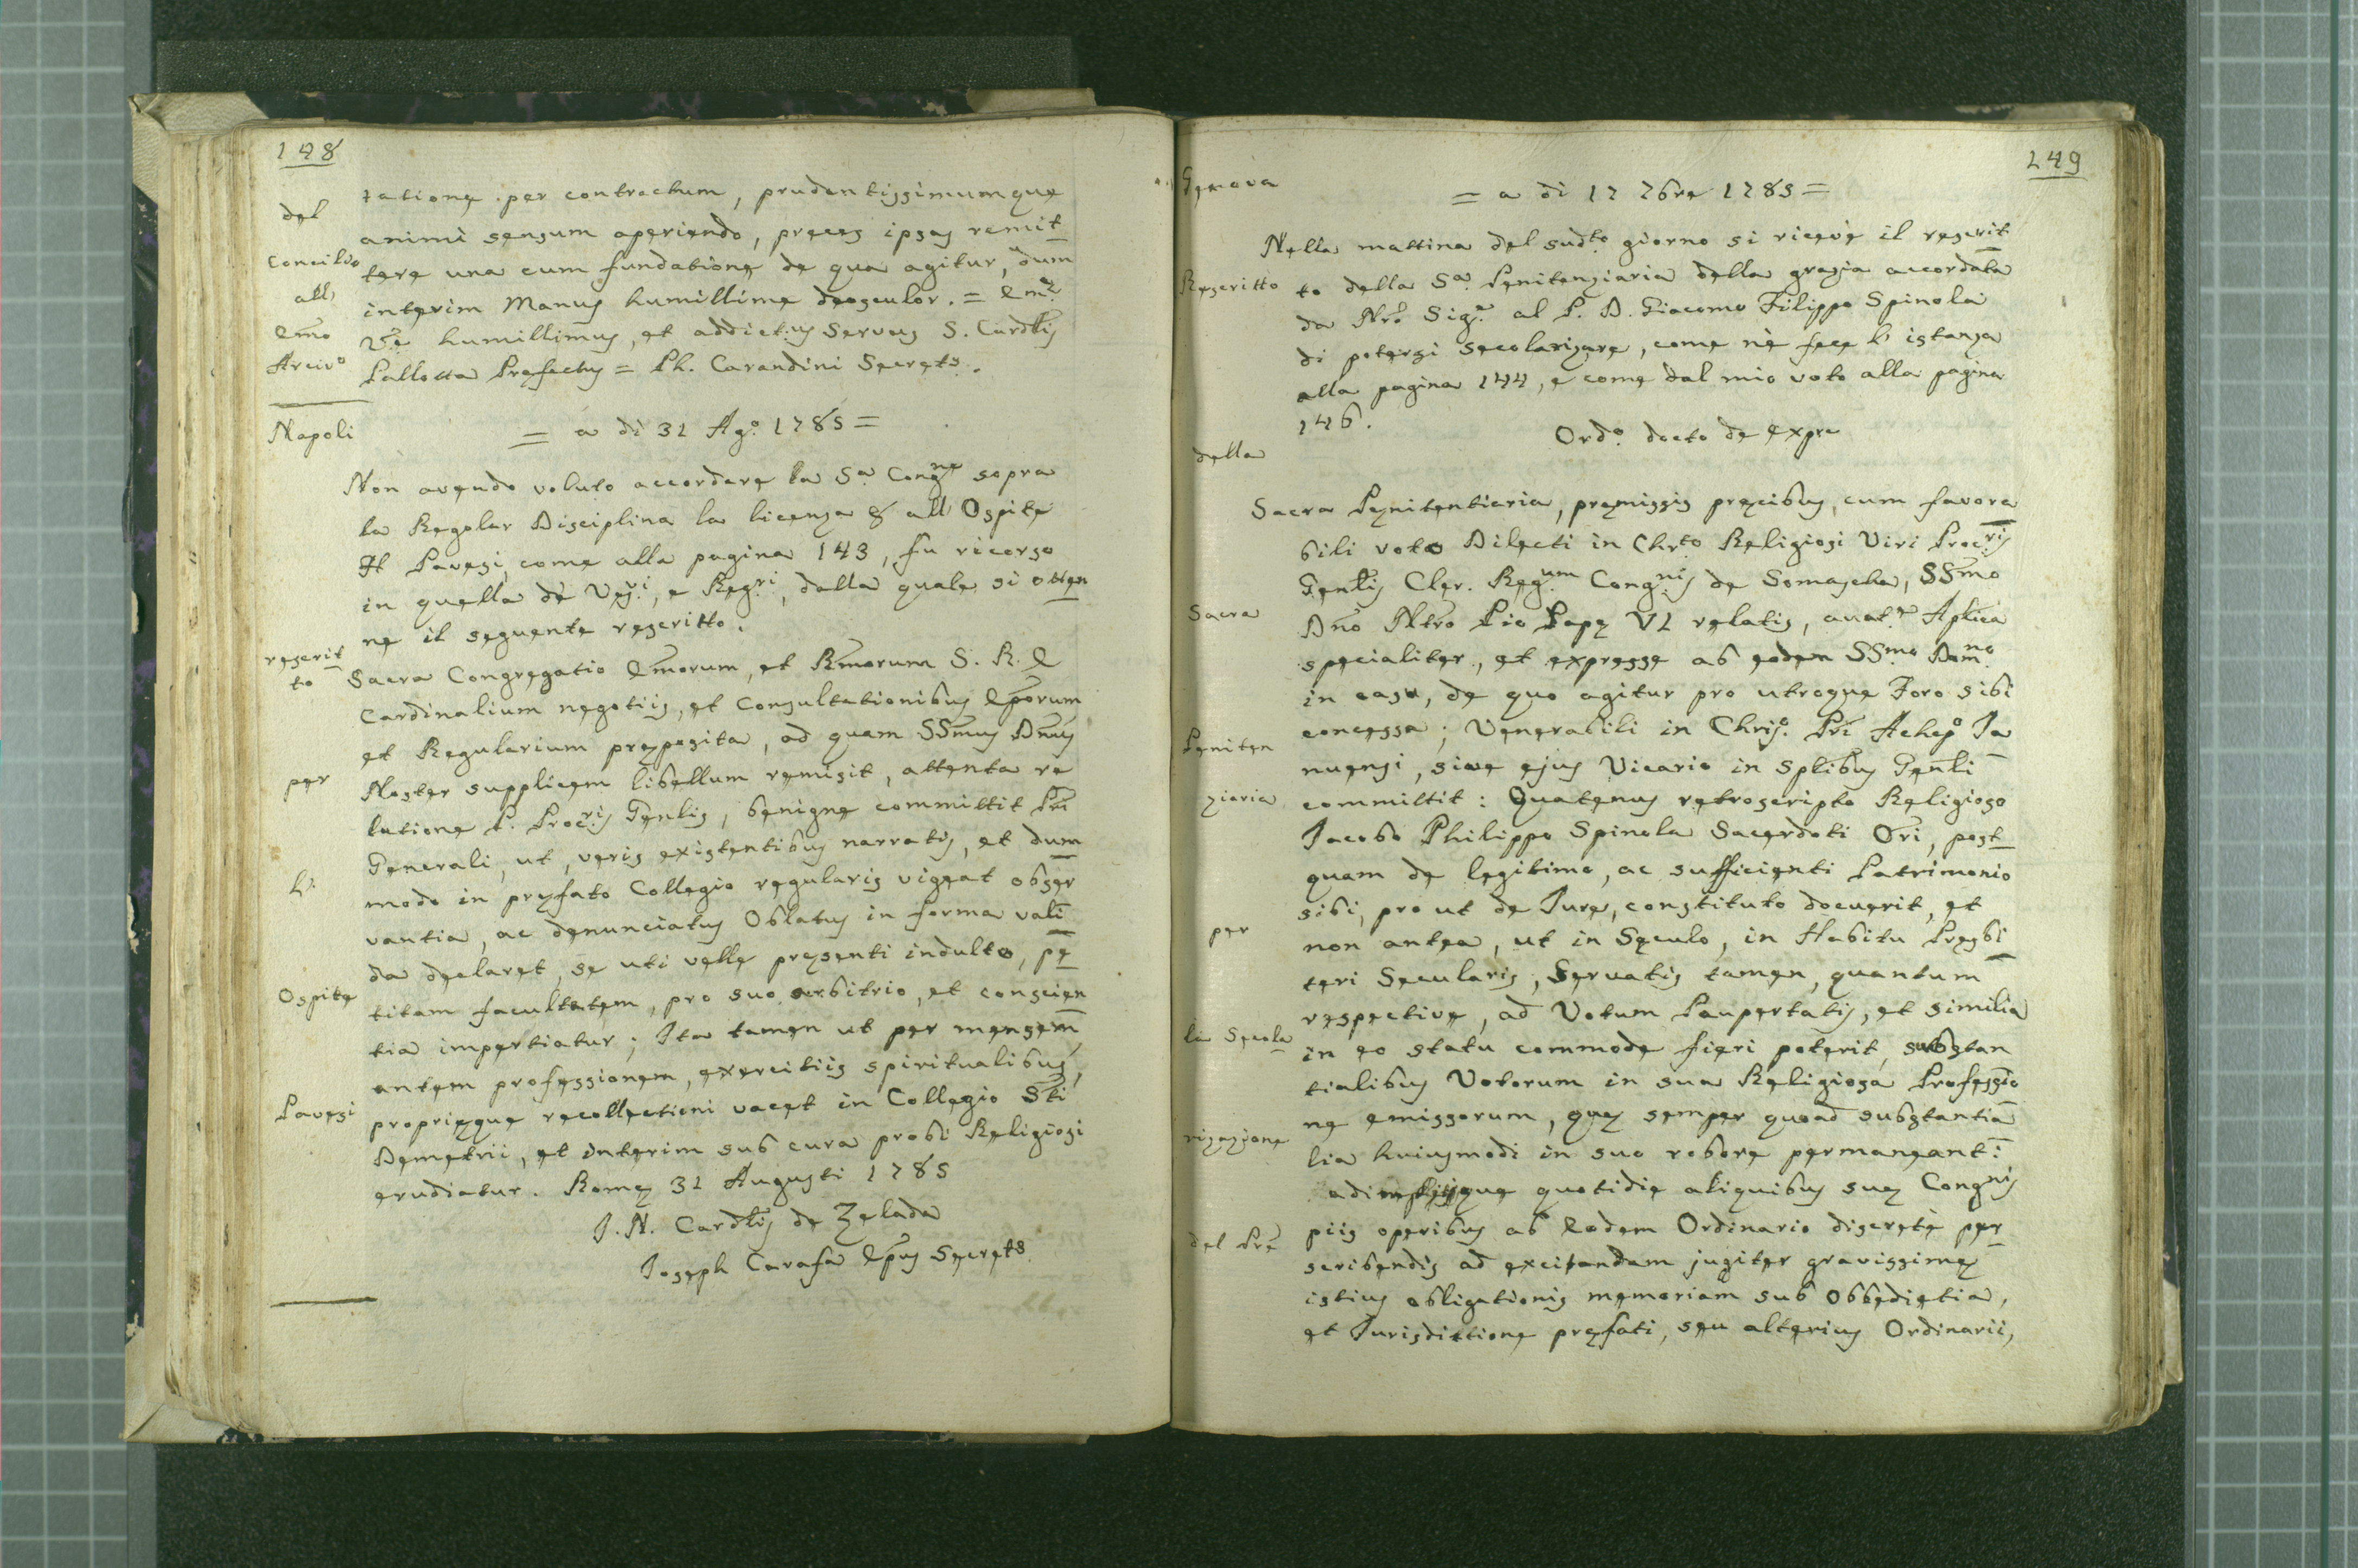 148
del
Concilio
all'
Emo
Arcivo
tatione per contractum, prudentissimumque
animi sensum aperiendo, preces ipsas remit
tere una cum fundatione de qua agitur, dum
interim Manus humillime deosculor. = Emæ
Væ humillimus, et addictus servus S. Cardlis
Pallotta Præfectus = Ph. Carandini Secrets.
Napoli
= a di 31 Ago. 1785 =
Non avendo voluto accordare la Sa. Congne sopra
la Regolar Disciplina la licenza & all'Ospite
Pavesi, come alla pagina 143, fu ricorso
in quella dè Vesvi, e Regri, dalla quale si otten
ne il seguente rescritto.
rescrit
to
per
l'
Ospite
Pavesi
Sacra Congregatio Emorum, et Rmorum S. R. E
Cardinalium negotiis, et Consultationibus Eporum
et Regularium præposita, ad quam SSmus Dnus
Noster supplicem libellum remisit, attenta re
latione P. Procris Genlis, benigne committit Pri
Generali, ut, veris existentibus narratis, et dum
modo in præfato Collegio regularis vigeat obser
vantia, ac denunciatus Oblatus in forma vali
da declaret, se uti velle præsenti indulto, pe
titam facultatem, pro suo arbitrio, et conscien
tia impertiatur; Ita tamen ut per mensem
antem professionem, exercitiis spiritualibus,
propriæque recollectioni vacet in Collegio Sti
Demetrii, et interim sub cura probi Religiosi
erudiatur. Romæ 31 Augusti 1785
J. N. Cardlis de Zelada
Joseph Carafa Epus Secrets
149
Genova
= a di 17 7bre 1785 =
Rescritto
della
Sacra
Peniten
ziaria
per
la Secola
rizazione
del Pre
Nella mattina del sudto giorno si ricevè il rescrit
to della Sa. Penitenziaria della grazia accordata
da Nro. Sige. al P. D. Giacomo Filippo Spinola
di potersi secolarizare, come nè fece l'istanza
alla pagina 144, e come dal mio voto alla pagina
146.
Ordo. docto de expre
Sacra Pænitentiaria, præmissis præcibus, cum favora
bili voto Dilecti in Chrto Religiosi Viri Procris
Genlis Cler. Regum Congnis de Somascha, SSmo
Dno Ntro Pio Papæ VI relatis, auate Aplica
specialiter, et expresse ab eodem SSmo Domno
in casu, de quo agitur pro utroque Foro sibi
concessa; Venerabili in Chriso. Pri Achepo Ja
nuensi, sive ejus Vicario in splibus Genli
committit: Quatenus retroscripto Religioso
Jacobo Philippo Spinola Sacerdoti Ori, post
quam de legitimo, ac sufficienti Patrimonio
sibi, pro ut de Jure, constituto docuerit, et
non antea, ut in Sæculo, in Habitu Presbi
teri Sæcularis, Servatis tamen, quantum
respective, ad Votum Paupertatis, et similia
in eo statu commode fieri poterit, substan
tialibus Votorum in sua Religiosa Professio
ne emissorum, quæ semper quoad substantia
lia huiusmodi in suo robore permaneant:
adimplisque quotidie aliquibus suæ Congnis
piis operibus ab Eodem Ordinario discretè per
scribendis ad excitandam jugiter gravissimæ
istius obligationis memoriam sub Obbedietia,
et Jurisdictione præfati, seu alterius Ordinarii,